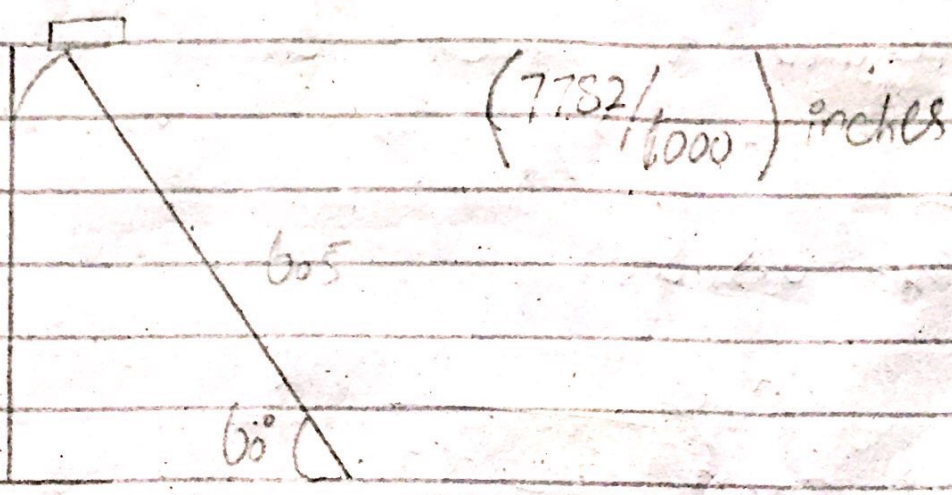 (7782/1000) inches
605
60°